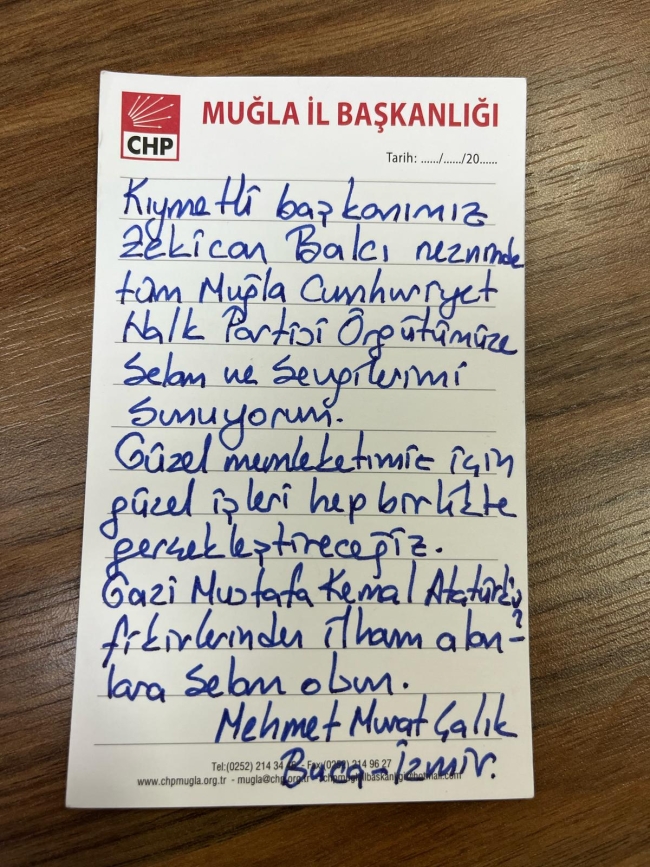 CHP
MUĞLA İL BAŞKANLIĞI
Tarih: ....../....../20......
Kıymetli başkanımız
Zekican Balcı nezninde
tüm Muğla Cumhuriyet
Halk Partisi Örgütümüze
Selam ve Sevgilerimi
Sunuyorum.
Güzel memleketimiz için
güzel işleri hep birlikte
gerçekleştireceğiz.
Gazi Mustafa Kemal Atatürk'ün
fikirlerinden ilham alan-
lara Selam olsun.
Mehmet Murat Çalık
Buca - İzmir.
Tel:(0252) 214 34 - Fax:(0252) 214 96 27
www.chpmugla.org.tr - mugla@chp.org.tr -